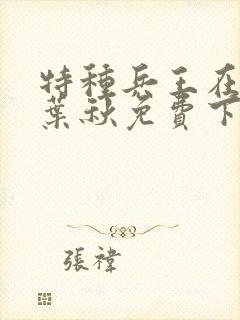 特種兵王在
葉秋免費下
張禕